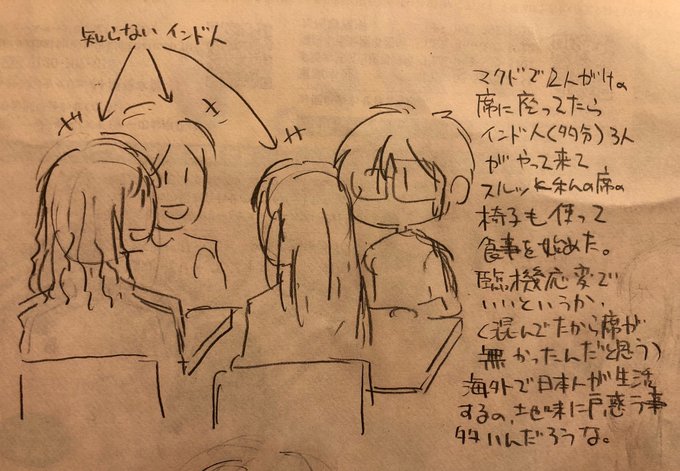 知らないインド人
マクドで2人がけの
席に座ってたら
インド人(多分)3人
がやって来て
スルッと私の席の
椅子も使って
食事を始めた。
臨機応変で
いいというか、
(混んでたから席が
無かったんだと思う)
海外で日本人が生活
するの、地味に戸惑う事
多いんだろうな。